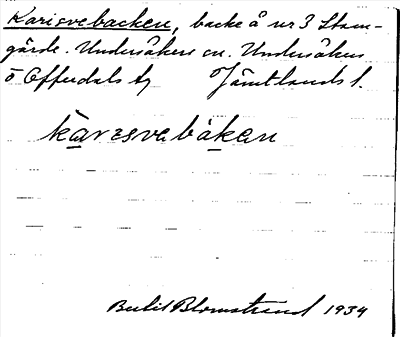 Karisvebacken, backe å nr 3 Stam-
gärde. Undersåkers sn. Undersåkers
o Offerdals tg Jämtlands l.
karısvebàkan
Bertil Blomstrand 1934